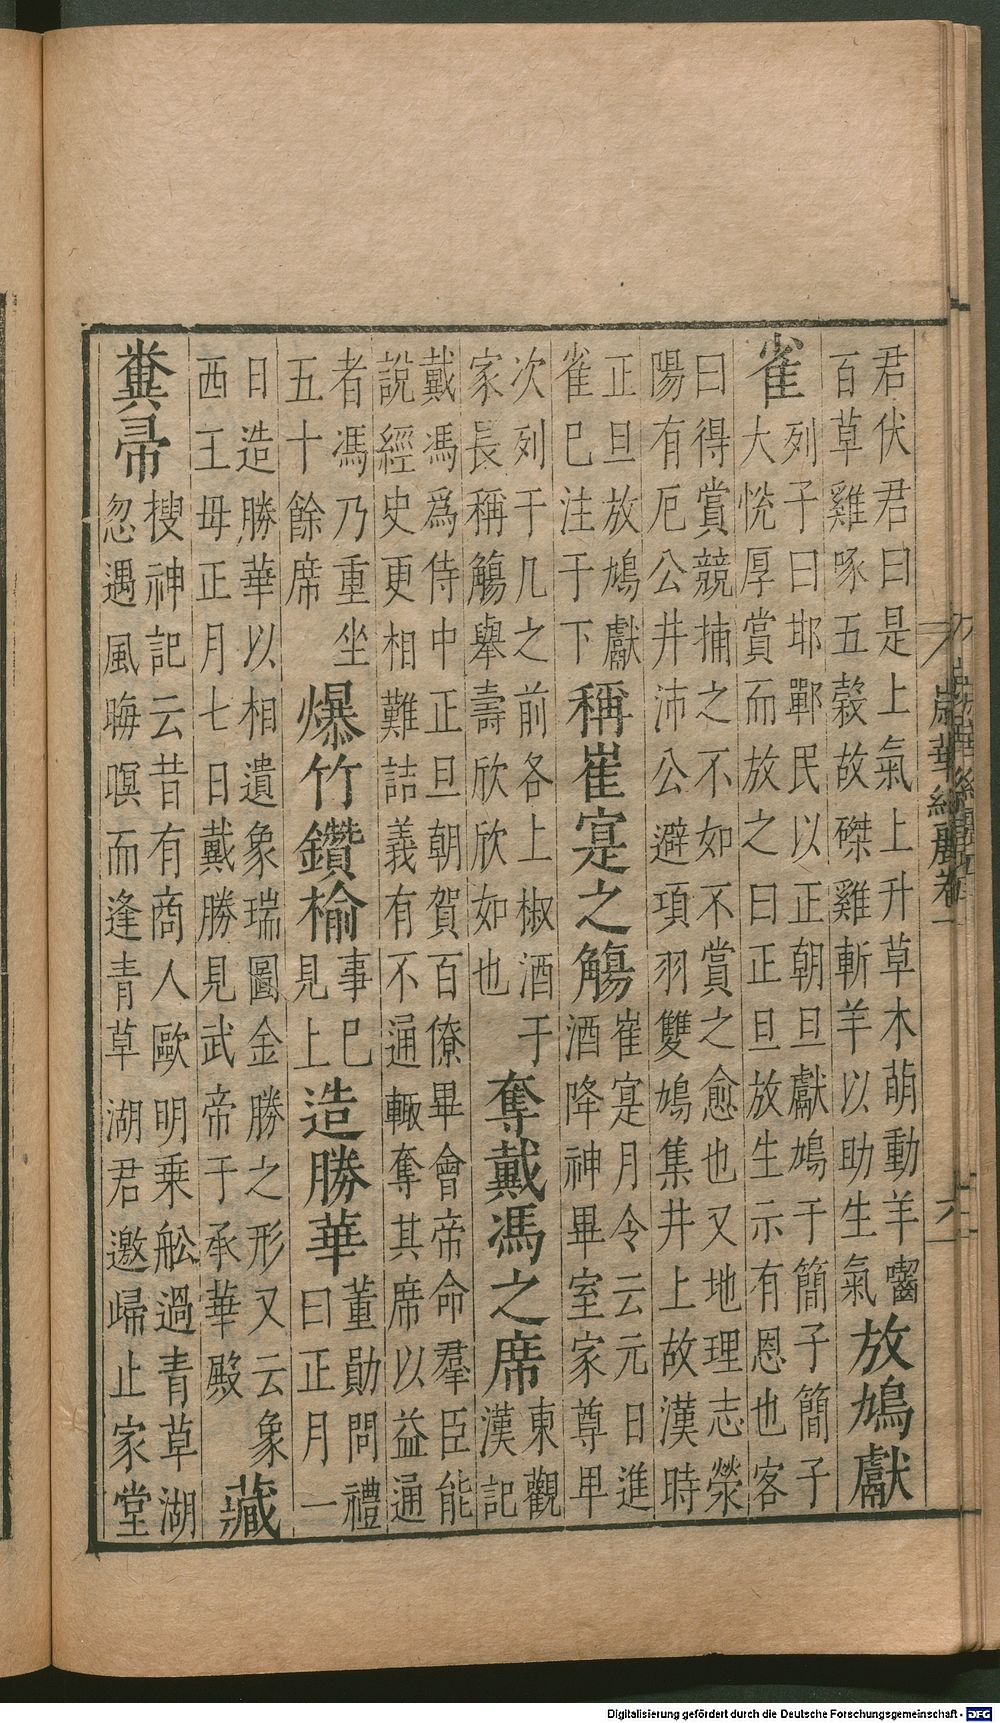 歲華紀麗卷一
六
君伏君曰是上氣上升草木萌動羊齧
百草雞啄五穀故磔雞斬羊以助生氣
放鳩獻
雀
列子曰邯鄲民以正朝旦獻鳩于簡子簡子
大恱厚賞而放之曰正旦放生示有恩也客
曰得賞競捕之不如不賞之愈也又地理志滎
陽有厄公井沛公避項羽雙鳩集井上故漢時
正旦放鳩獻
雀巳注于下
稱崔寔之觴
崔寔月令云元日進
酒降神畢室家尊卑
次列于几之前各上椒酒于
家長稱觴舉壽欣欣如也
奪戴馮之席
東觀
漢記
戴馮爲侍中正旦朝賀百僚畢會帝命羣臣能
說經史更相難詰義有不通輙奪其席以益通
者馮乃重坐
五十餘席
爆竹鑽榆
事巳
見上
造勝華
董勛問禮
曰正月一
日造勝華以相遺象瑞圖金勝之形又云象
西王母正月七日戴勝見武帝于承華殿
藏
糞帚
搜神記云昔有商人歐明乗舩過青草湖
忽遇風晦暝而逢青草湖君邀歸止家堂
Digitalisierung gefördert durch die Deutsche Forschungsgemeinschaft - DFG